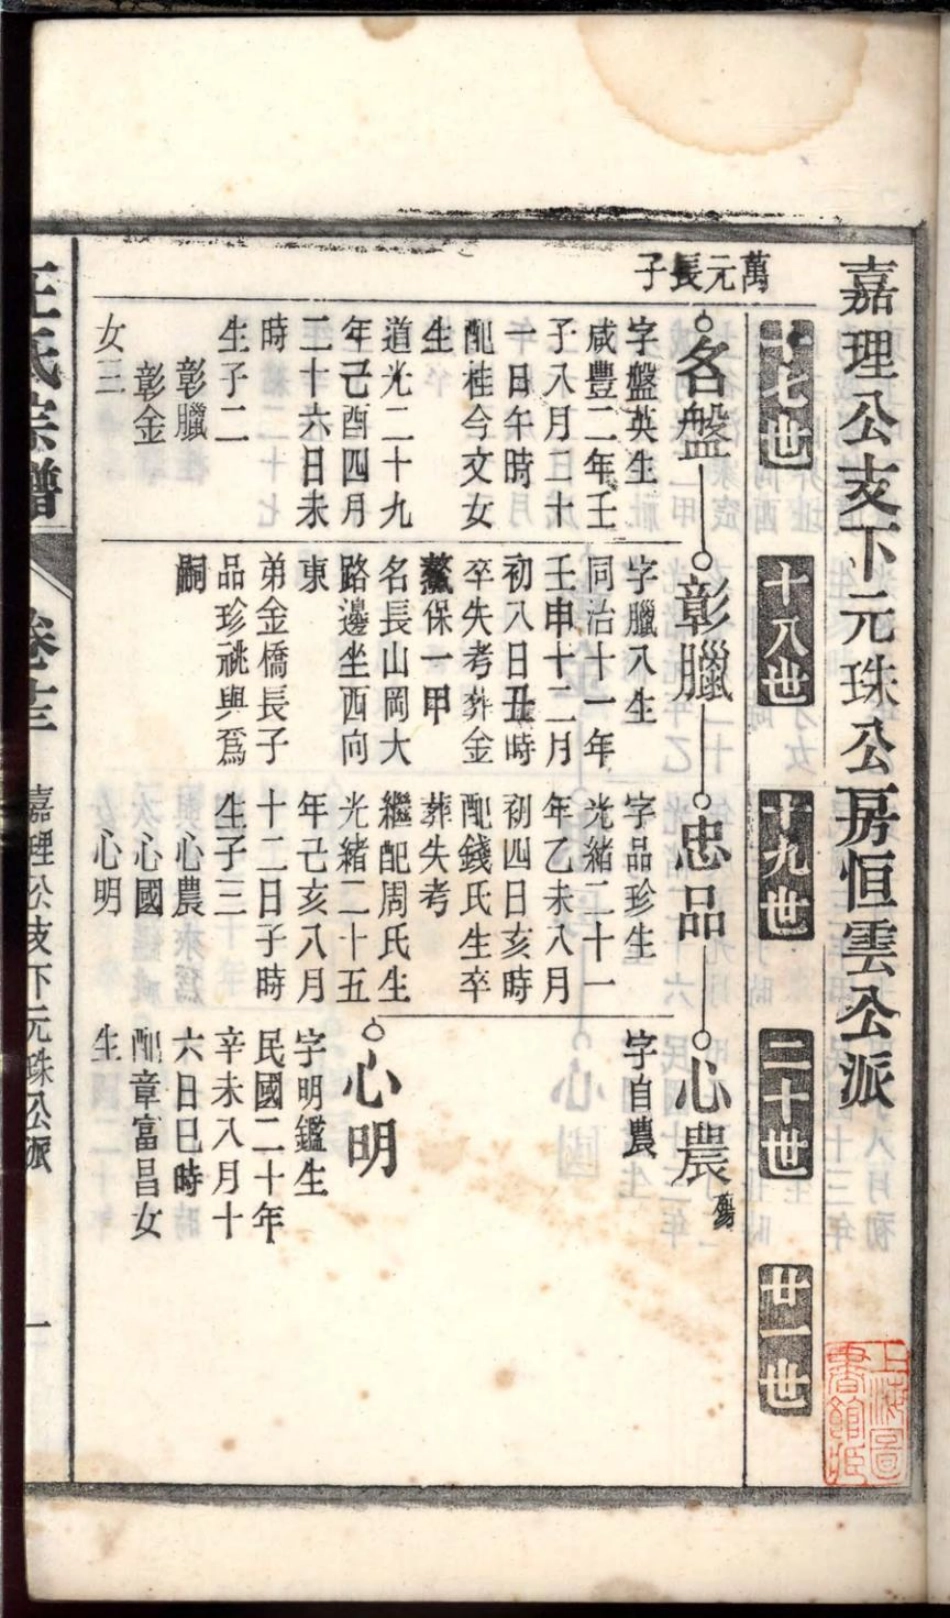 嘉理公支下元珠公房恒雲公派
十七世
十八世
十九世
二十世
廿一世
萬元長子
名盤
字盤英生
咸豐二年壬
子八月二十
一日午時
配桂今文女
生
道光二十九
年己酉四月
二十六日未
時
生子二
彰臘
彰金
女三
彰臘
字臘八生
同治十一年
壬申十二月
初八日丑時
卒失考葬金
鰲保一甲
名長山岡大
路邊坐西向
東
弟金橋長子
品珍祧與爲
嗣
忠品
字品珍生
光緒二十一
年乙未八月
初四日亥時
配錢氏生卒
葬失考
繼配周氏生
光緒二十五
年己亥八月
十二日子時
生子三
心農
心國
心明
心農
殤
字自農
心明
字明鑑生
民國二十年
辛未八月十
六日巳時
配章富昌女
生
王氏宗譜
卷十三
嘉理公支下元珠公派
一
上海圖
書館藏